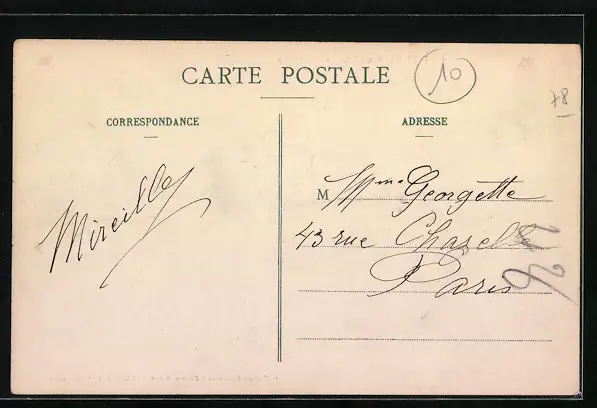 CARTE POSTALE
10
78
CORRESPONDANCE
ADRESSE
Mireille
M Mme Georgette
43 rue
Paris